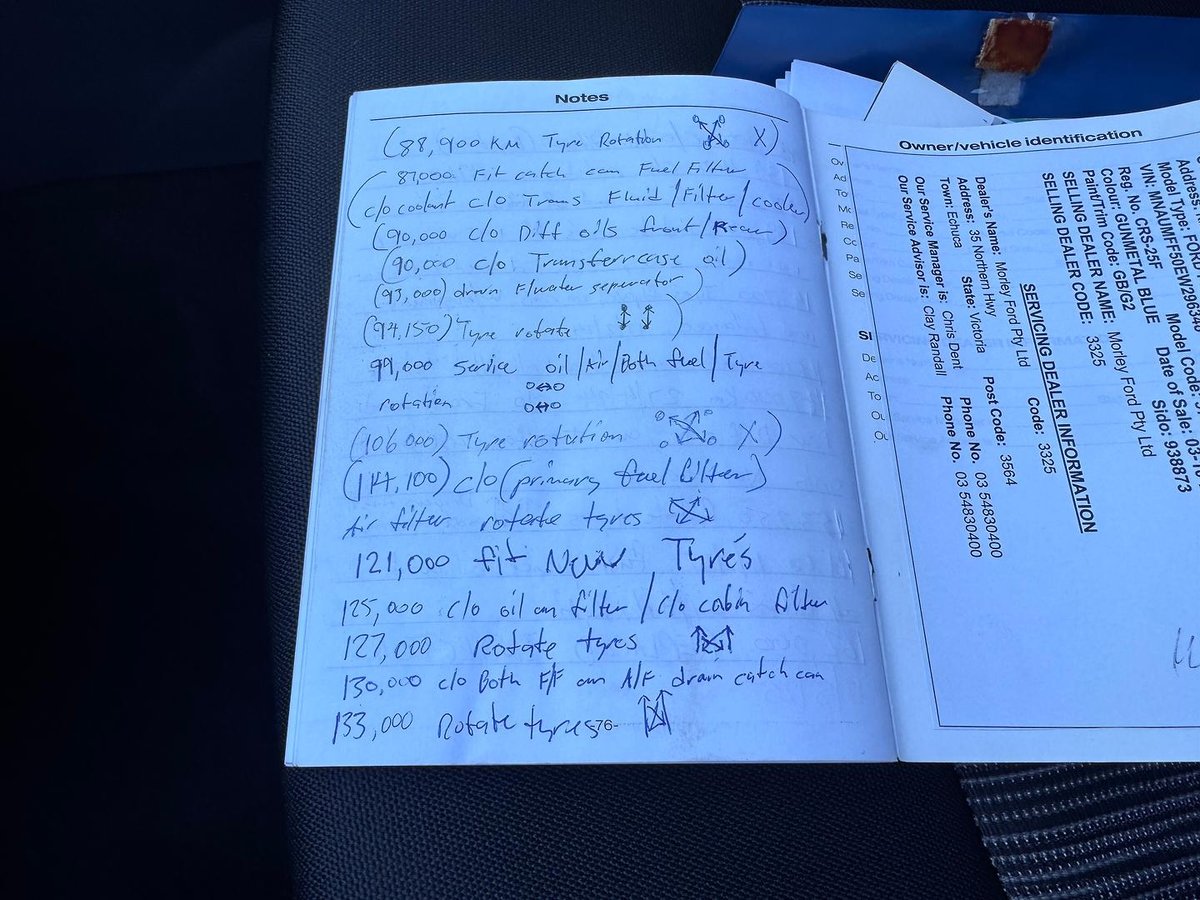 Notes
(88,900 KM Tyre Rotation X)
(87,000 Fit catch can Fuel Filter
c/o coolant c/o Trans Fluid/Filter/cooler)
(90,000 c/o Diff oils front/Rear)
(90,000 c/o Transfercase oil)
(93,000) drain F/water seperator)
(94,150) Tyre rotate )
99,000 service oil/Air/Both fuel/Tyre
rotation
(106000) Tyre rotation X)
(114,100) c/o (primary fuel filter)
Air filter rotate tyres
121,000 fit New Tyres
125,000 c/o oil an filter/c/o cabin filter
127,000 Rotate tyres
130,000 c/o Both F/F an A/F drain catch can
133,000 Rotate tyres
-76-
Owner/vehicle identification
Address:
Model Type: FORD
VIN: MNAUMFF50EW29634 Model Code:
Reg. No. CRS-25F Date of Sale: 03-10
Colour: GUNMETAL BLUE Sido: 938873
Paint/Trim Code: GB/G2
SELLING DEALER NAME: Morley Ford Pty Ltd
SELLING DEALER CODE: 3325
SERVICING DEALER INFORMATION
Dealer's Name: Morley Ford Pty Ltd Code: 3325
Address: 35 Northern Hwy
Town: Echuca State: Victoria Post Code: 3564
Our Service Manager is: Chris Dent Phone No. 03 54830400
Our Service Advisor is: Clay Randall Phone No. 03 54830400
Ov
Ad
To
Re
Co
Pa
Se
Se
De
Ac
To